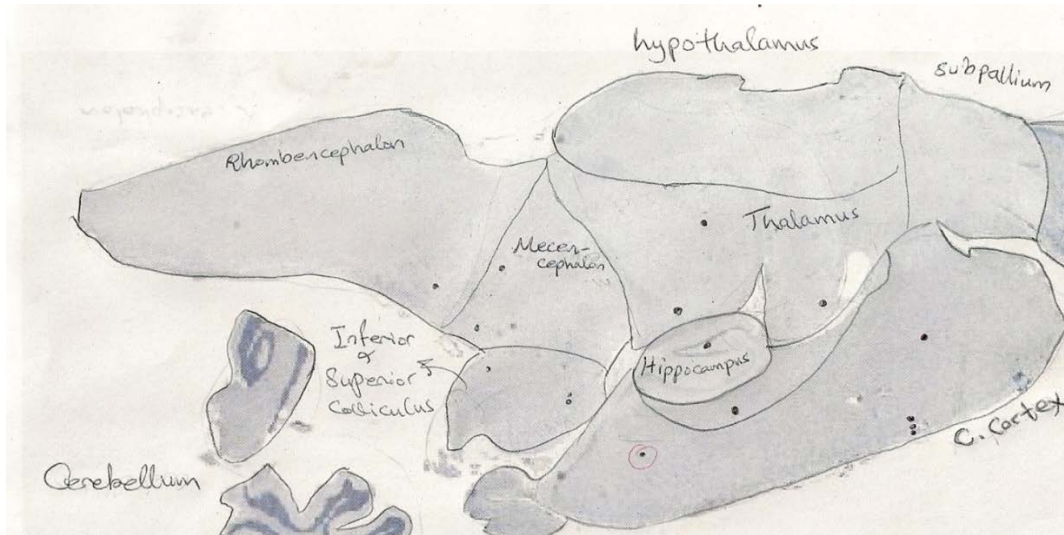 hypothalamus
subpallium
Rhombencephalon
Thalamus
Mecen-
cephalon
Inferior
&
Superior
colliculus
Hippocampus
C. Cortex
Cerebellum